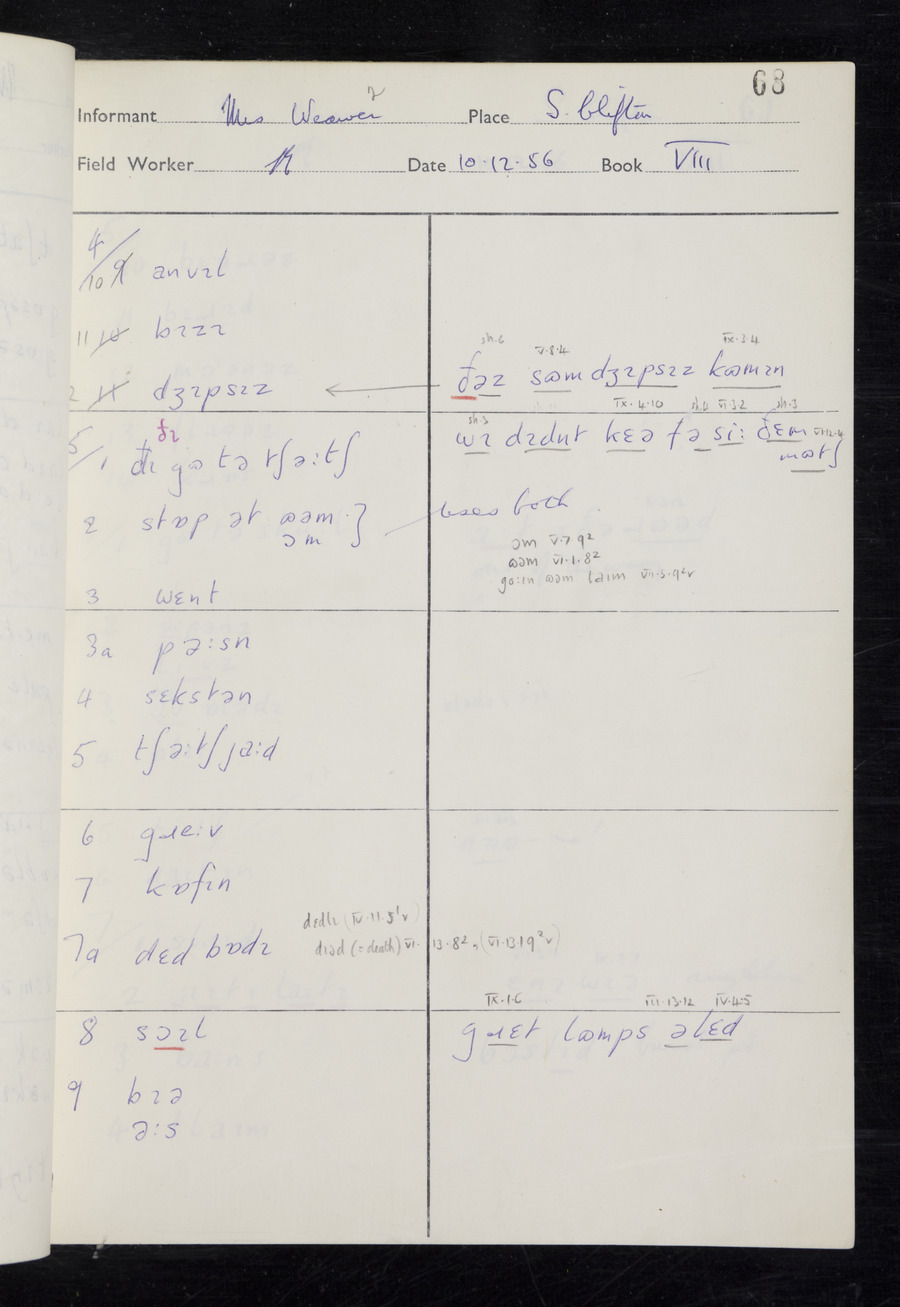 68
Informant Mrs Weaver 2 Place S. Clifton
Field Worker Date 10·12·56 Book VIII
4/10 9 anvɪl
11 10 bɪzɪ
2 11 dʒɪpsɪz ← ðəz sɷm dʒɪpsɪz kɷmɪn
sh.6 V·8·4 IX·3·4
5/1 ðɪ gɷ tə tʃə:tʃ
ðɪ
wɪ dɪdnt kɛə fə si: ðɛm mɷtʃ
sh.3 IX·4·10 VI·3·2 sh.3
2 stɒp ət ɷəm } uses both
ɔm
ɔm V·7·9²
ɷəm VI·1·8²
go:ɪn ɷəm taɪm VII·5·9²v
3 wɛnt
3a pə:sn
4 sɛkstən
5 tʃə:tʃ ja:d
6 gɹe:v
7 kɒfɪn
7a dɛd bɒdɪ
dɛdlɪ (IV·11·5¹v)
dɪəd (=death) VI·13·8², (VI·13·19²v)
8 sɔɪl gɹɛt lɷmps əlɛd
IX·1·6 III·13·12 IV·4·5
9 bɪə
ə:s